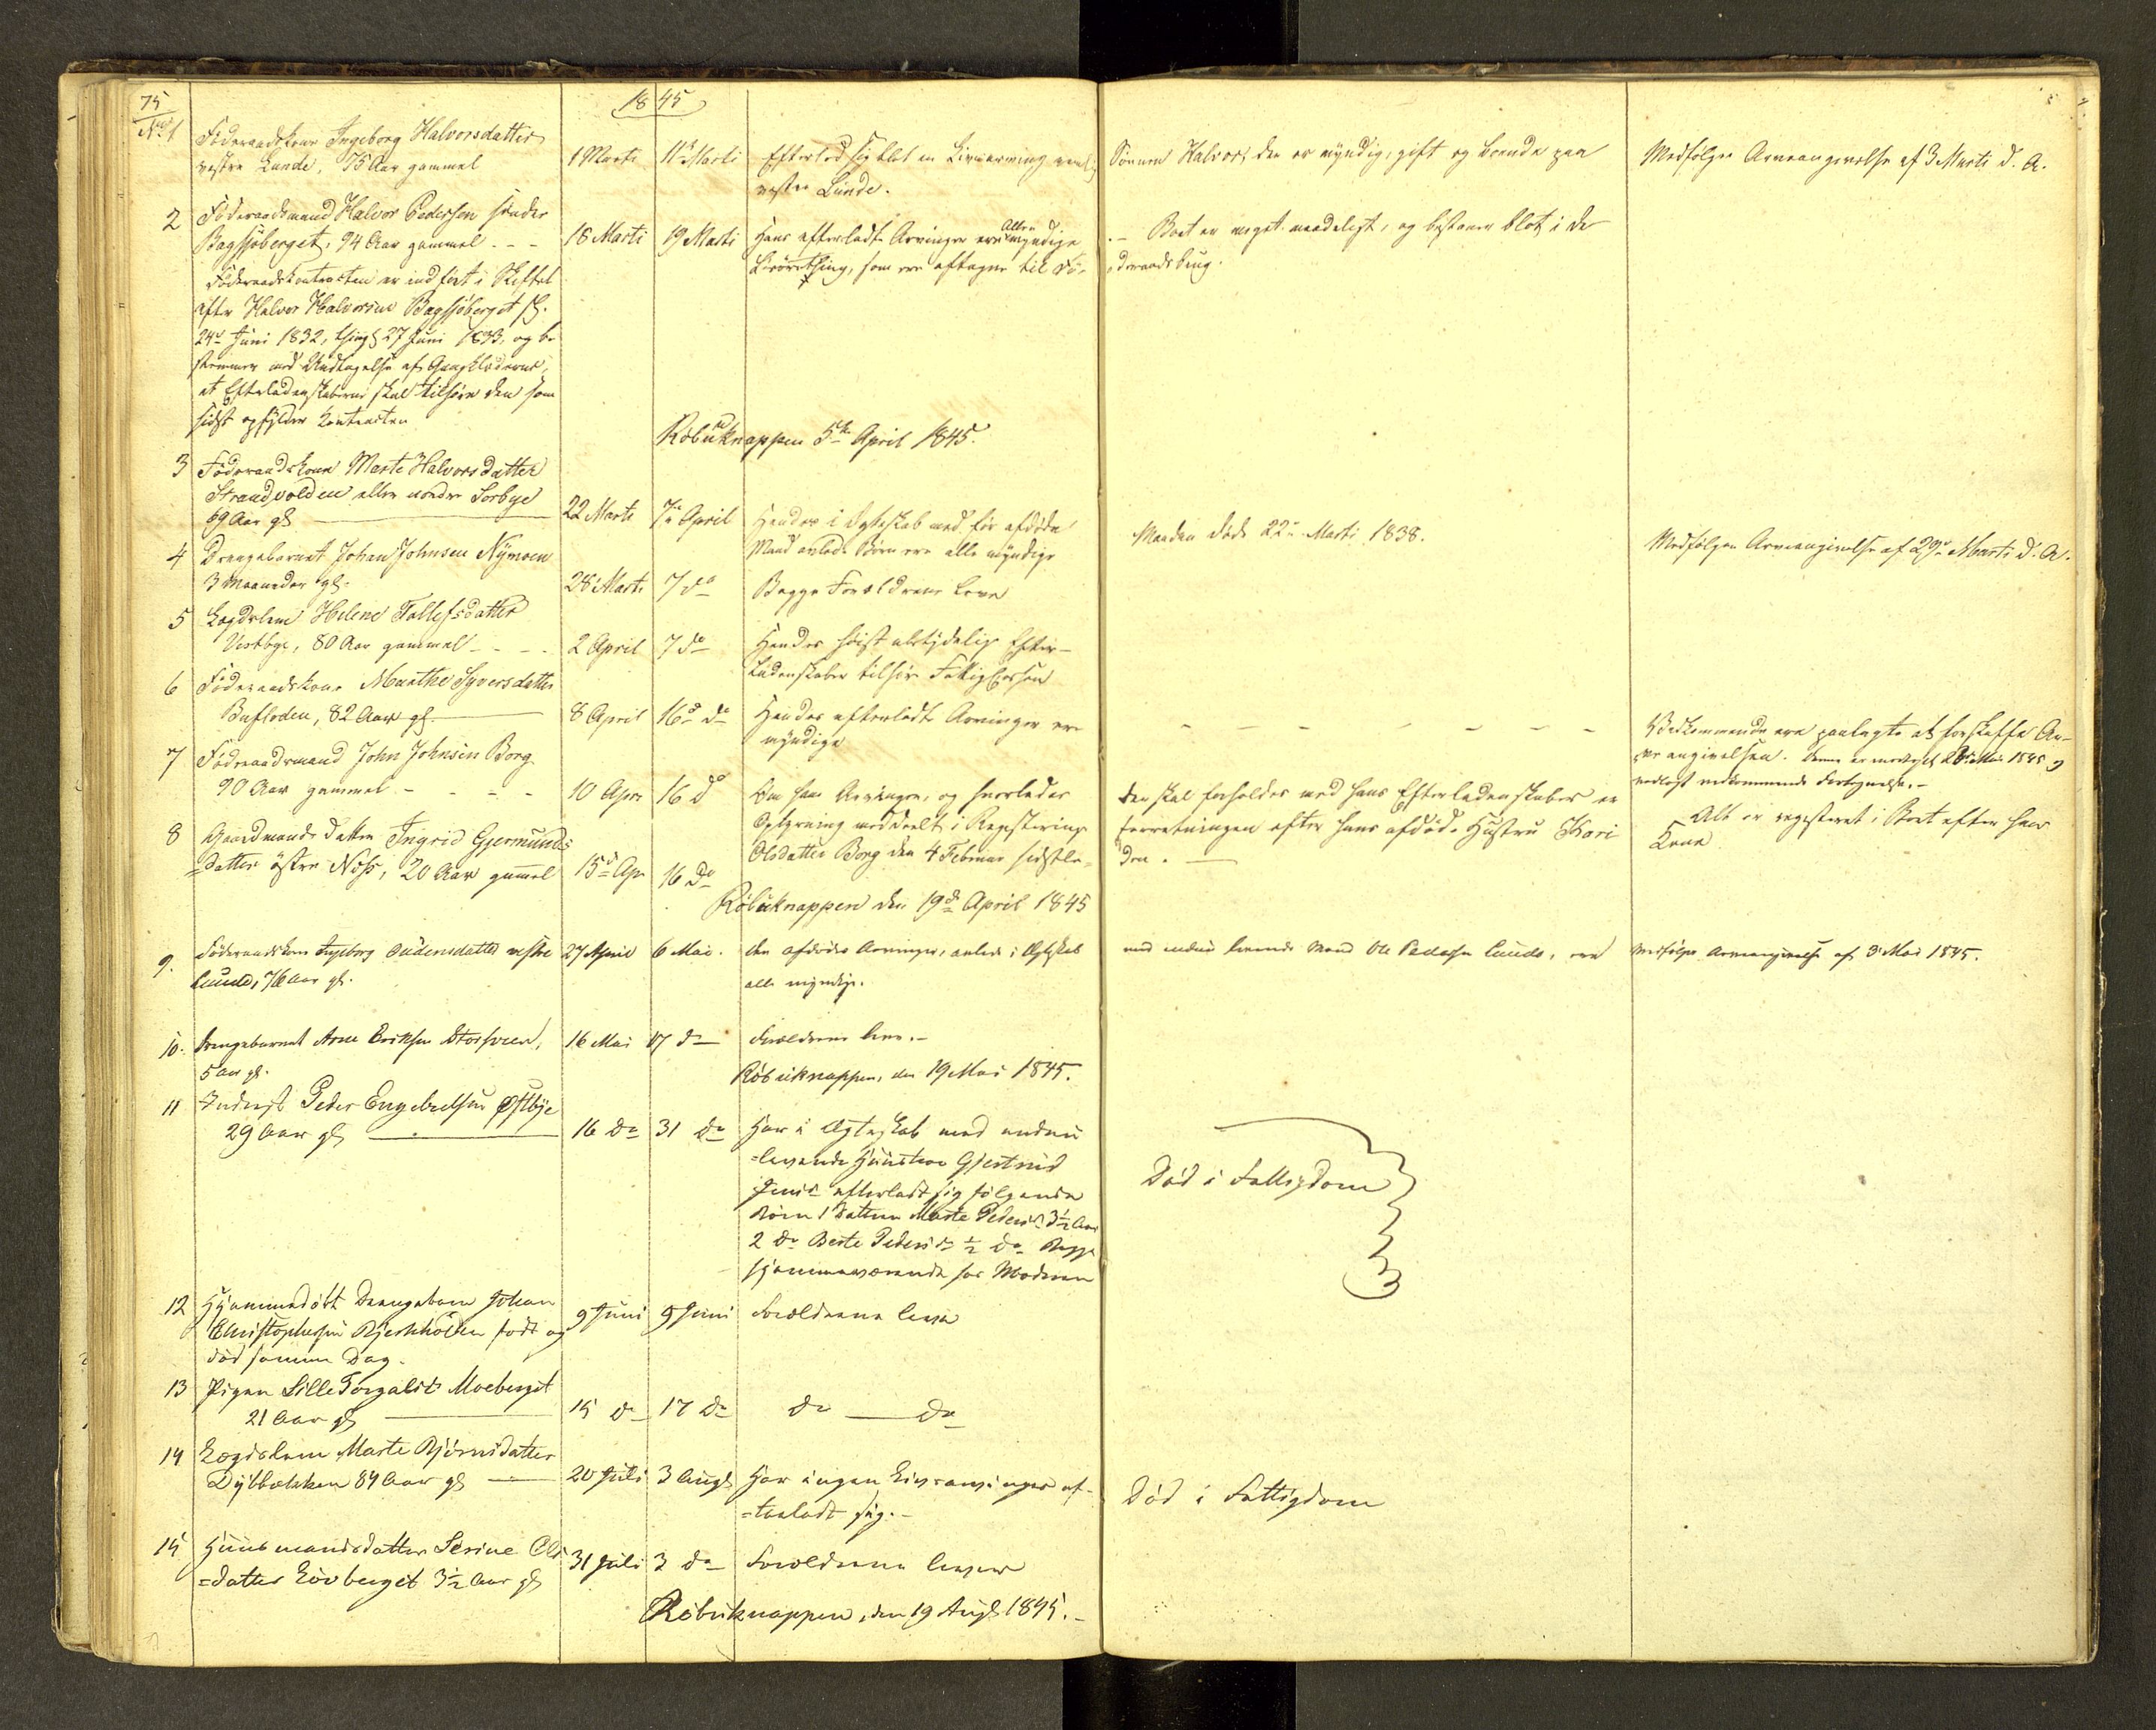 75
1845
No 1 Föderaadskone Ingeborg Halvorsdatter
vestre Lunde, 75 Aar gammel
1 Marti 11te Marti
Efterlod sig blot en Livsarving
Sönnen Halvor, der er myndig, gift og boende paa
vestre Lunde.
Medfölger Arveangivelse af 3 Marti d. A.
2 Föderaadsmand Halvor Pedersen söndre
Bagsjöberget, 94 Aar gammel
16 Marti 19 Marti
Hans efterladte Arvinger ere Alle myndige
som ere aftagne til Fö-
Boet er meget maadeligt, og bestaaer blot i de
deraads brug.
Föderaadskontracten er indfört i Skiftet
efter Halvor Halvorsen Bagsjöberget
24de Juni 1832, thingl 27 Juni 1833, og be-
stemmer med Undtagelse af Gangklæderne,
at Efterladenskaberne skal tilhöre den som
sidst opfylder Kontracten
Röbuknappen 5te April 1845.
3 Föderaadskone Marte Halvorsdatter
Strandvolden eller nordre Sorbye
69 Aar gl
22 Marti 7de April
Hendes i Ægteskab med för afdöde
Mand avlede Börn ere alle myndige
Manden döde 22de Marti 1838.
Medfölger Arveangivelse af 29de Marti d. A.
4 Drengebarnet Johan Johnsen Nymoen
3 Maaneder gl.
28 Marti 7 do
Begge Forældrene leve
5 Lægdslem Helene Tollefsdatter
Vestbye, 80 Aar gammel
2 April 7 do
Hendes höist ubetydelige Efter-
ladenskaber tilhöre Fattigkassen
6 Föderaadskone Marthe Syversdatter
Bufloden, 82 Aar gl.
8 April 16de do
Hendes efterladte Arvinger ere
myndige
Vedkommende ere paalagte at forskaffe Ar-
veangivelsen. Denne er modtaget 28 Mai 1845 og
vedlagt vedkommende Fortegnelse.
7 Föderaadsmand John Johnsen Borg
90 Aar gammel
10 Apr 16 do
Om hans Arvinger, og hvorledes
der skal forholdes med hans Efterladenskaber er
Oplysning meddeelt i Registerings
forretningen efter hans afdöde Hustru Kari
Olsdatter Borg den 4 Februar sidstle-
den.
Alt er registeret i Boet efter hans
Kone
8 Gaardmands datter Ingrid Gjermunds
datter östre Noss, 20 Aar gammel
15de Apr 16 do
Röbuknappen den 19de April 1845
9. Föderaadskone Ingeborg Audensdatter vestre
Lunde, 76 Aar gl.
27 April 6 Mai.
den afdödes Arvinger, avlede i Ægteskab
med endnu levende Mand Ole Pedersen Lunde, ere
alle myndige.
Medfölger Arveangivelse af 3 Mai 1845.
10. Drengebarnet Arne Eriksen Storsveen,
5 Aar gl.
16 Mai 17 do
Forældrene leve.
Röbuknappen, den 19 Mai 1845.
11 Inderst Peder Engebretsen Östbye
29 Aar gl
16 do 31 do
Har i Ægteskab med endnu
levende Hustrue Gjertrud
efterladt sig fölgende
Börn 1 Datteren Marte Pedersd. 3½ Aar
2 do Berte Pedersd. ½ do Begge
hjemmeværende hos Moderen
Död i Fattigdom
12 Hjemmedöbt Drengebarn Johan
Christophersen Bjerkholten födt og
död samme Dag.
9 Juni 9 Juni
Forældrene leve
13 Pigen Lille Torgalsd. Moeberget
21 Aar gl
15 do 17 do
do do
14 Lægdslem Marte Björnsdatter
Dybbækken 84 Aar gl
20 Juli 3 Augl
Har ingen Livsarvinger ef-
terladt sig.
Död i Fattigdom
15 Huusmandsdatter Serine Ols
datter Lövberget 3½ Aar gl
31 Juli 3 do
Forældrene lever
Röbuknappen, den 19 Augl 1845.